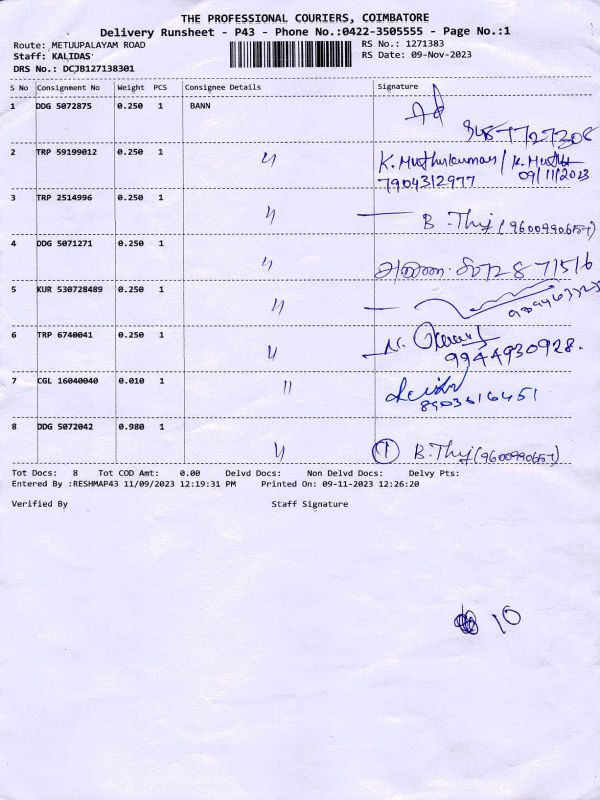 THE PROFESSIONAL COURIERS, COIMBATORE
Delivery Runsheet - P43 - Phone No.:0422-3505555 - Page No.:1
Route: METUUPALAYAM ROAD RS No.: 1271383
Staff: KALIDAS RS Date: 09-Nov-2023
DRS No.: DCJB127138301
S No Consignment No Weight PCS Consignee Details Signature
1 DDG 5072875 0.250 1 BANN
2 TRP 59199012 0.250 1 〃 K. Muthukumar / K. Muthu
7904312977 09/11/2023
3 TRP 2514996 0.250 1 〃 B. Thij (9600990657)
4 DDG 5071271 0.250 1 〃
5 KUR 530728489 0.250 1 〃
6 TRP 6740041 0.250 1 〃 N.
9944930928.
7 CGL 16040040 0.010 1 〃
8903616451
8 DDG 5072042 0.980 1 〃 1 B. Thij (9600990657)
Tot Docs: 8 Tot COD Amt: 0.00 Delvd Docs: Non Delvd Docs: Delvy Pts:
Entered By :RESHMAP43 11/09/2023 12:19:31 PM Printed On: 09-11-2023 12:26:20
Verified By Staff Signature
10